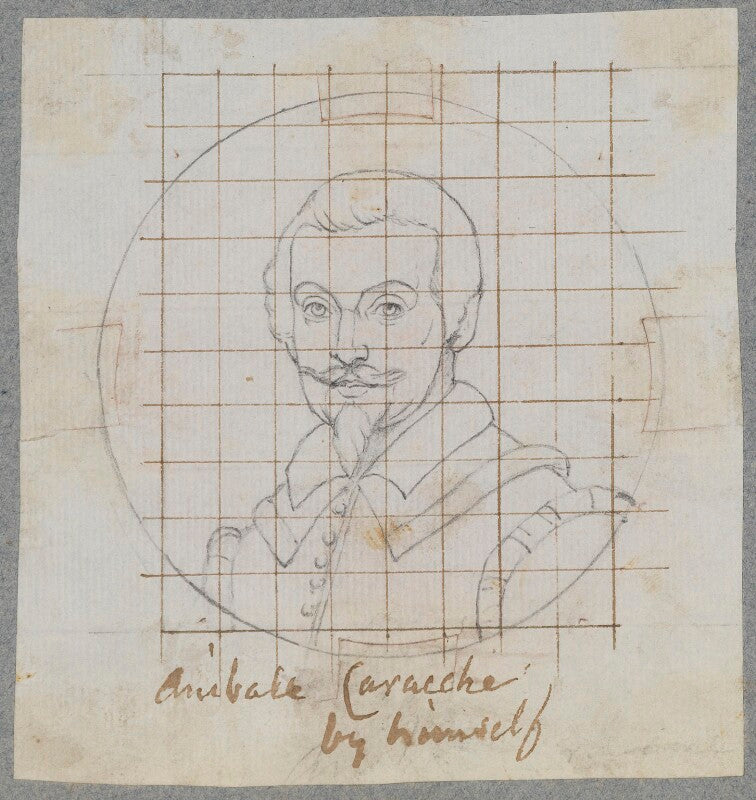 Anibale Caracche
by himself